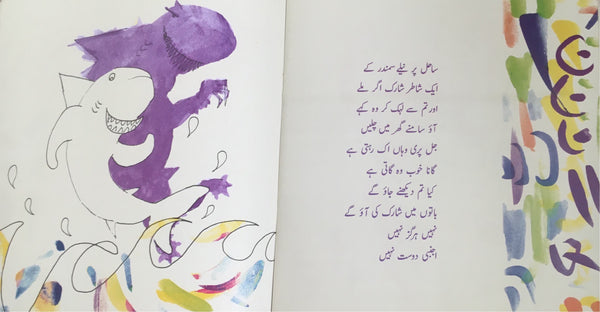 ساحل پر نیلے سمندر کے
ایک شاطر شارک اگر ملے
اور تم سے لپک کر وہ کہے
آؤ سامنے گھر میں چلیں
جل پری وہاں اک رہتی ہے
گانا خوب وہ گاتی ہے
کیا تم دیکھنے جاؤ گے
باتوں میں شارک کی آؤ گے
نہیں ہرگز نہیں
اجنبی دوست نہیں